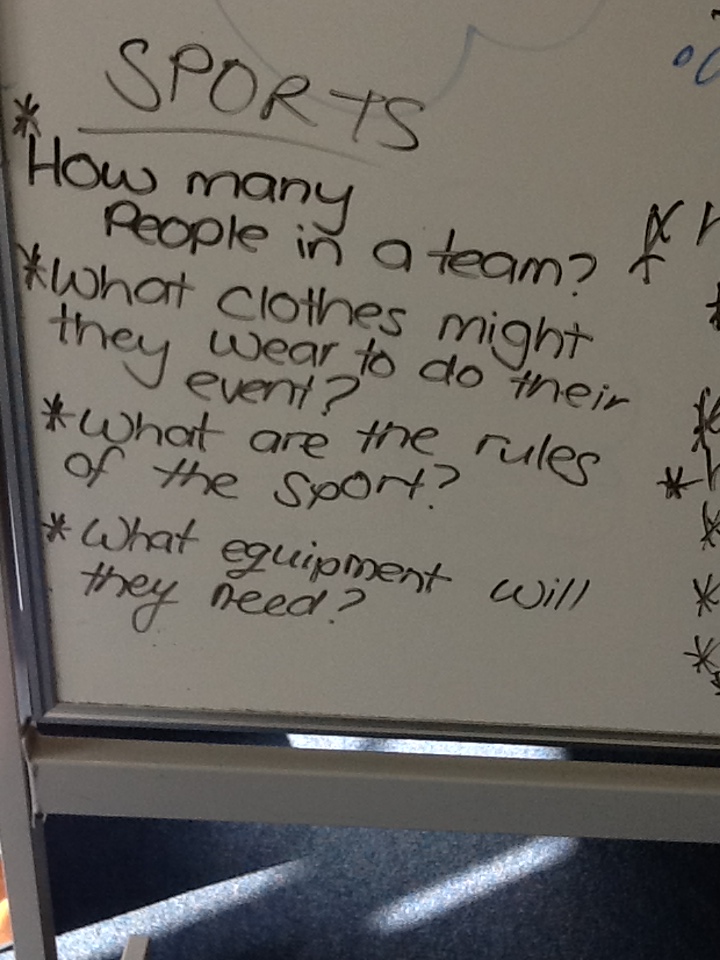 SPORTS
* How many
People in a team?
* What clothes might
they wear to do their
event?
* What are the rules
of the sport?
* What equipment will
they need?